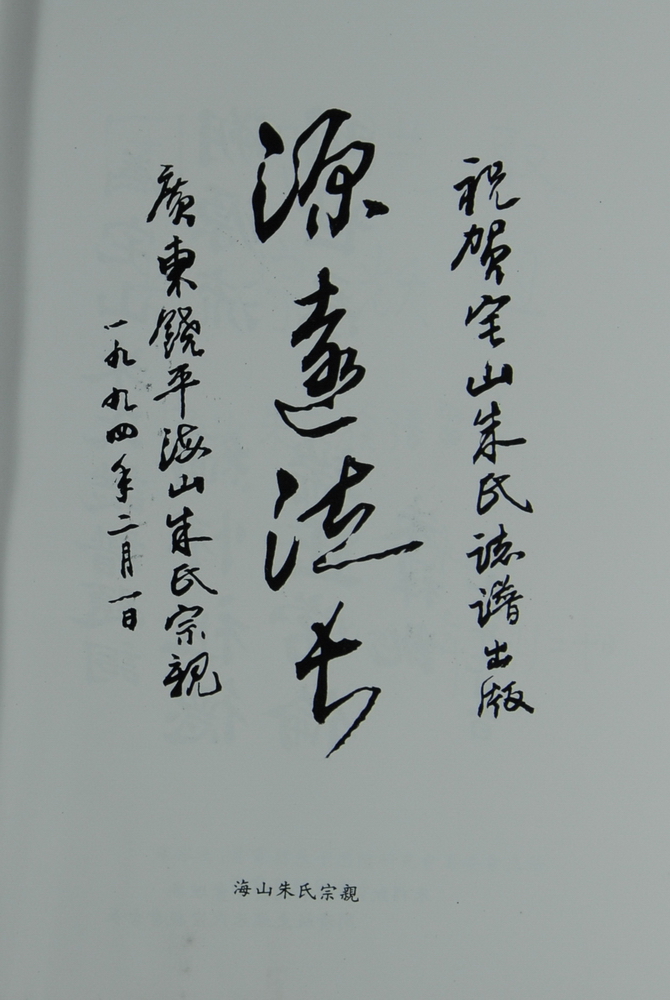 祝賀宅山朱氏誌譜出版
源遠流長
廣東饒平海山朱氏宗親
一九九四年二月一日
海山朱氏宗親